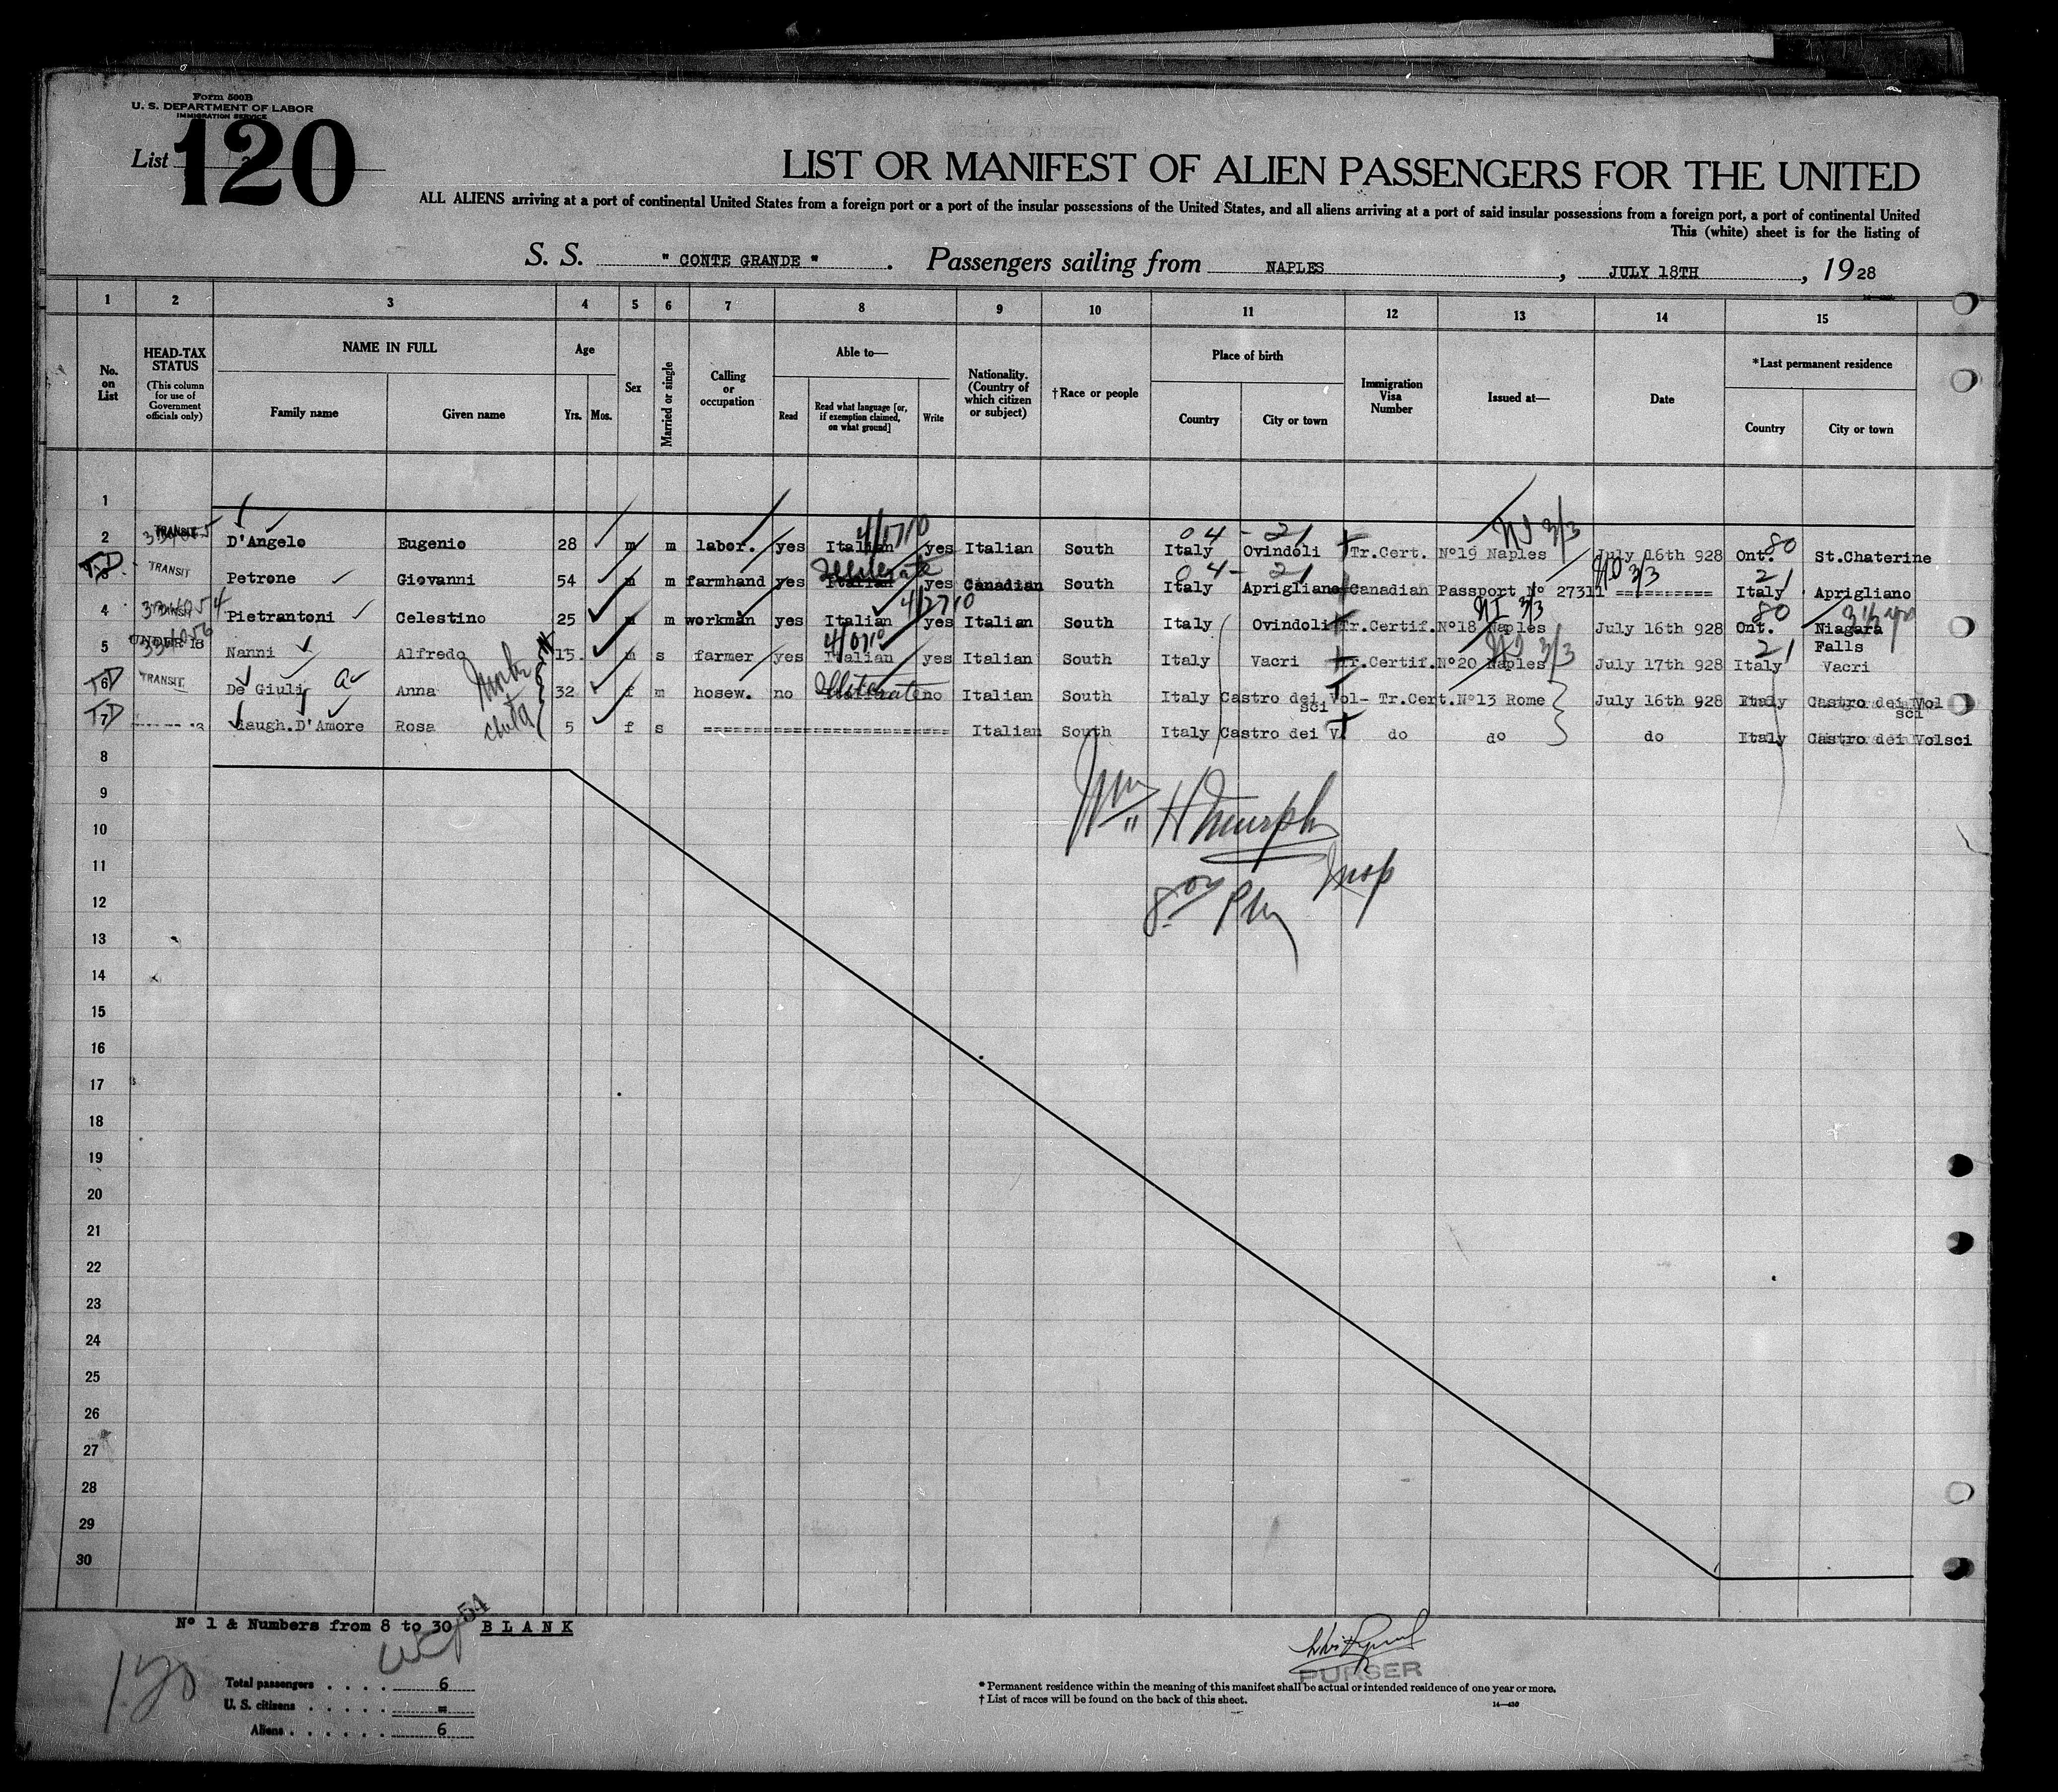 Form 500B
U. S. DEPARTMENT OF LABOR
IMMIGRATION SERVICE
List 120
LIST OR MANIFEST OF ALIEN PASSENGERS FOR THE UNITED
ALL ALIENS arriving at a port of continental United States from a foreign port or a port of the insular possessions of the United States, and all aliens arriving at a port of said insular possessions from a foreign port, a port of continental United
This (white) sheet is for the listing of
S. S. " CONTE GRANDE ". Passengers sailing from NAPLES, JULY 18TH, 1928
1 2 3 4 5 6 7 8 9 10 11 12 13 14 15
No. on List
HEAD-TAX STATUS (This column for use of Government officials only)
NAME IN FULL
Family name Given name
Age
Yrs. Mos.
Sex
Married or single
Calling or occupation
Able to—
Read
Read what language [or, if exemption claimed, on what ground]
Write
Nationality. (Country of which citizen or subject)
†Race or people
Place of birth
Country City or town
Immigration Visa Number
Issued at—
Date
*Last permanent residence
Country City or town
1
2 TRANSIT D'Angelo Eugenio 28 m m labor. yes Italian yes Italian South Italy Ovindoli Tr.Cert. Nº19 Naples July 16th 928 Ont. St.Chaterine
3 TRANSIT Petrone Giovanni 54 m m farmhand yes Italian Illiterate yes Canadian South Italy Aprigliano Canadian Passport Nº 27311 ========== Italy Aprigliano
4 TRANSIT Pietrantoni Celestino 25 m m workman yes Italian yes Italian South Italy Ovindoli Tr.Certif.Nº18 Naples July 16th 928 Ont. Niagara Falls
5 UNDER 16 Nanni Alfredo 15 m s farmer yes Italian yes Italian South Italy Vacri Tr.Certif.Nº20 Naples July 17th 928 Italy Vacri
6 TRANSIT De Giuli Anna 32 f m hosew. no Illiterate no Italian South Italy Castro dei Vol-sci Tr.Cert.Nº13 Rome July 16th 928 Italy Castro dei Volsci
7 daugh.D'Amore Rosa 5 f s ========================= Italian South Italy Castro dei V. do do do Italy Castro dei Volsci
8
9
10
Wm H Murphy
11
Insp
12
13
14
15
16
17
18
19
20
21
22
23
24
25
26
27
28
29
30
Nº 1 & Numbers from 8 to 30 BLANK
Total passengers . . . . 6
U. S. citizens . . . . . =
Aliens . . . . . . 6
PURSER
* Permanent residence within the meaning of this manifest shall be actual or intended residence of one year or more.
† List of races will be found on the back of this sheet.
14—430